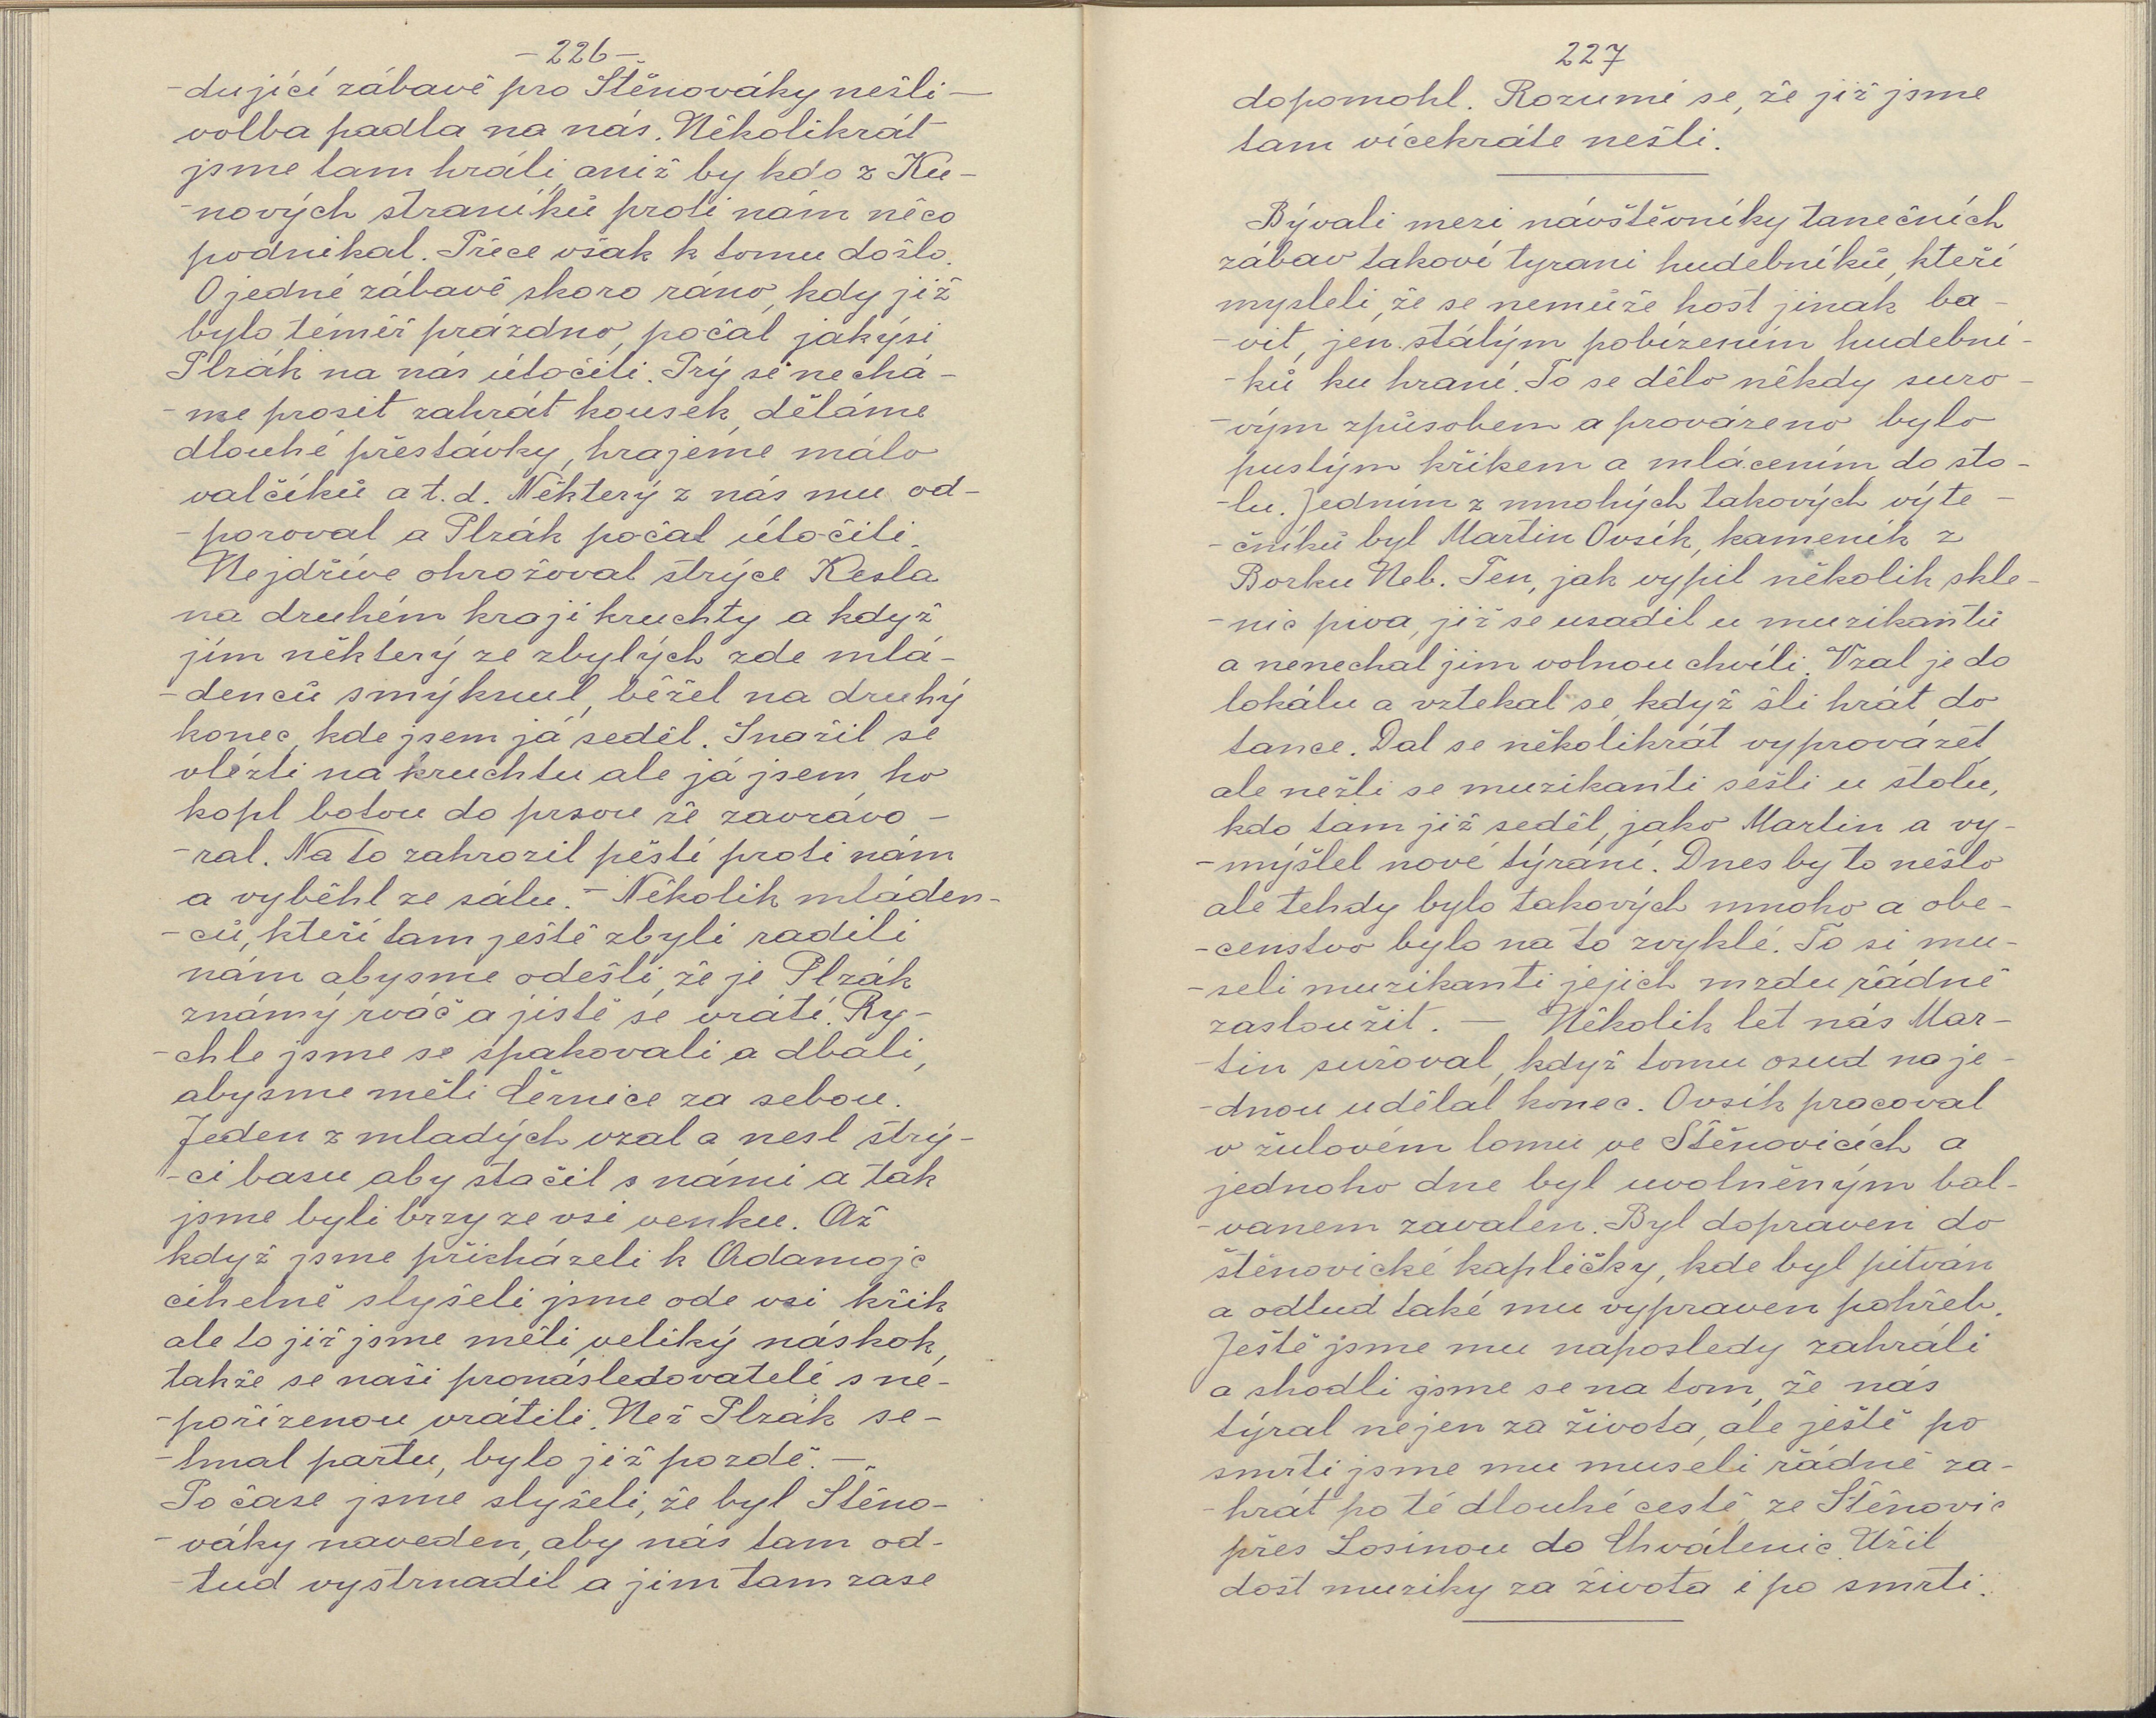 -226-
-dující zábavě pro Štěnováky nešli-
volba padla na nás. Několikrát
jsme tam hráli, aniž by kdo z Ku-
-nových straníků proti nám něco
podnikal. Přece však k tomu došlo.
O jedné zábavě skoro ráno, kdy již
bylo téměř prázdno, počal jakýsi
Plzák na nás útočiti. Prý se nechá-
-me prosit zahrát kousek, děláme
dlouhé přestávky, hrajeme málo
valčíků a t. d. Některý z nás mu od-
-poroval a Plzák počal útočiti.
Nejdříve ohrožoval strýce Kesla
na druhém kraji kruchty a když
jím některý ze zbylých zde mlá-
-denců smýknul, běžel na druhý
konec, kde jsem já seděl. Snažil se
vlézti na kruchtu ale já jsem ho
kopl botou do prsou že zavrávo-
-ral. Na to zahrozil pěstí proti nám
a vyběhl ze sálu. - Několik mláden-
-ců, kteří tam ještě zbyli radili
nám abysme odešli, že je Plzák
známý rváč a jistě se vrátí. Ry-
-chle jsme se spakovali a dbali,
abysme měli Černice za sebou.
Jeden z mladých vzal a nesl strý-
-ci basu aby stačil s námi a tak
jsme byli brzy ze vsi venku. Až
když jsme přicházeli k Adamojc
cihelně slyšeli jsme ode vsi křik
ale to již jsme měli veliký náskok,
takže se naši pronásledovatelé s ne-
-pořízenou vrátili. Než Plzák se-
-hnal partu, bylo již pozdě. -
Po čase jsme slyšeli, že byl Štěno-
-váky naveden, aby nás tam od-
-tud vystrnadil a jim tam zase
227
dopomohl. Rozumí se, že již jsme
tam vícekráte nešli.
Bývali mezi návštěvníky tanečních
zábav takoví tyrani hudebníků, kteří
mysleli, že se nemůže host jinak ba-
-vit, jen stálým pobízením hudební-
-ků ku hraní. To se dělo někdy suro-
-vým způsobem a prováženo bylo
pustým křikem a mlácením do sto-
-lu. Jedním z mnohých takových výte-
-čníků byl Martin Ovsík, kameník z
Borku Neb. Ten, jak vypil několik skle-
-nic piva, již se usadil u muzikantů
a nenechal jim volnou chvíli. Vzal je do
lokálu a vztekal se, když šli hrát do
tance. Dal se několikrát vyprovázet,
ale nežli se muzikanti sešli u stolu,
kdo tam již seděl, jako Martin a vy-
-mýšlel nové týrání. Dnes by to nešlo
ale tehdy bylo takových mnoho a obe-
-censtvo bylo na to zvyklé. To si mu-
-seli muzikanti jejich mzdu řádně
zasloužit. - Několik let nás Mar-
-tin sužoval, když tomu osud naje-
-dnou udělal konec. Ovsík pracoval
v žulovém lomu ve Štěnovicích a
jednoho dne byl uvolněným bal-
-vanem zavalen. Byl dopraven do
štěnovické kapličky, kde byl pitván
a odtud také mu vypraven pohřeb.
Ještě jsme mu naposledy zahráli
a shodli jsme se na tom, že nás
týral nejen za života, ale ještě po
smrti jsme mu museli řádně za-
-hrát po té dlouhé cestě ze Štěnovic
přes Losinou do Chválenic. Užil
dost muziky za života i po smrti.